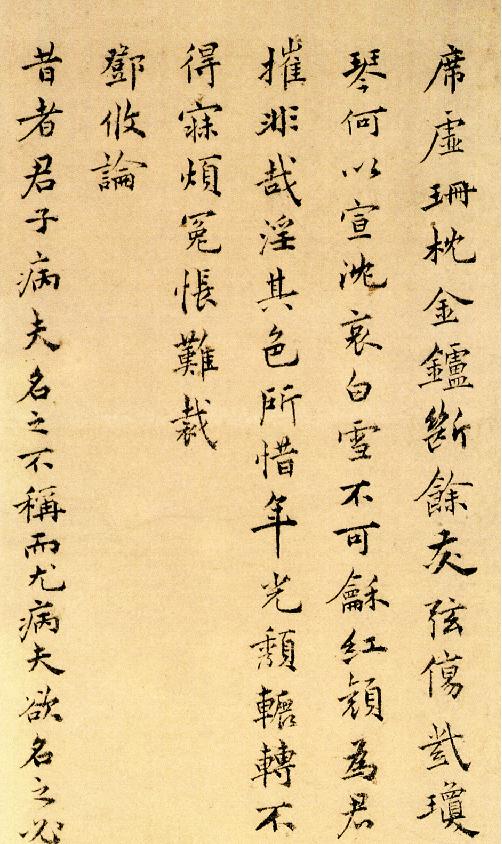 席虛珊枕金鑪斷餘灰弦傷瓊
琴何以宣沈哀白雪不可龢紅顏為君
摧非哉淫其色所惜年光頹輾轉不
得寐煩冤悵難裁
鄧攸論
昔者君子病夫名之不稱而尤病夫欲名之必